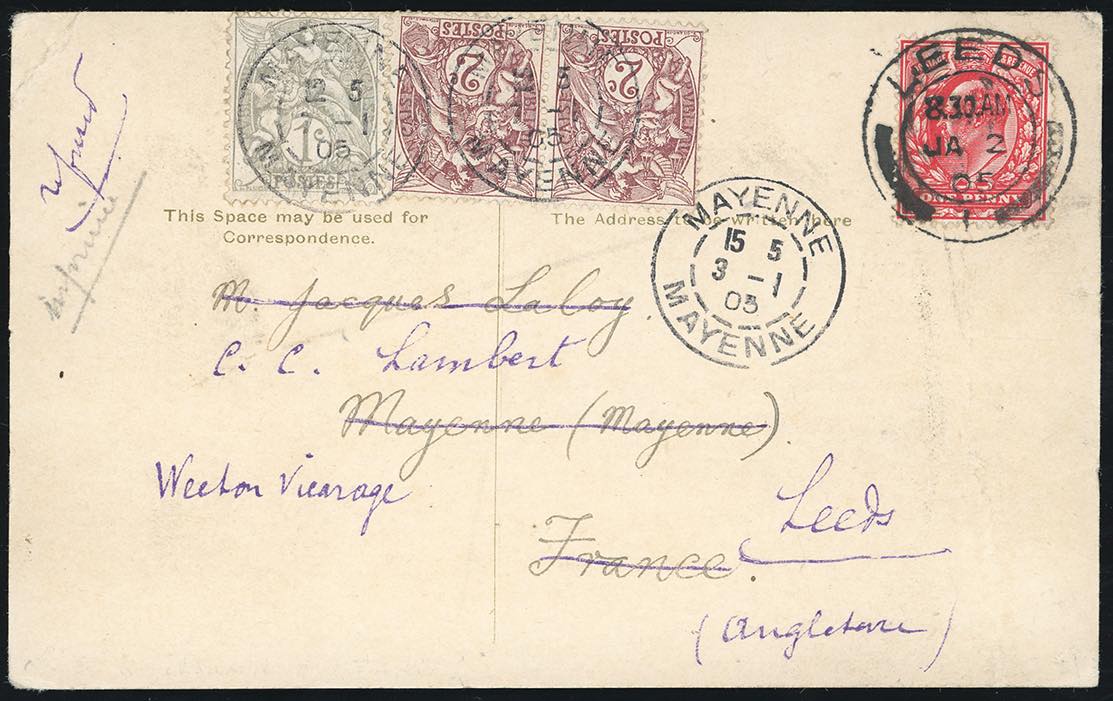 refusé
imprimé
1c
POSTES
2
POSTES
2
POSTES
12 5
-1
05
MAYENNE
MAYENNE
05
LEEDS
8.30AM
JA 2
05
1
ONE PENNY
This Space may be used for
Correspondence.
The Address to be written here
MAYENNE
15 5
3 -1
05
MAYENNE
M. Jacques Laloy.
C. C. Lambert
Mayenne (Mayenne)
Weeton Vicarage
Leeds
France.
(Angleterre)